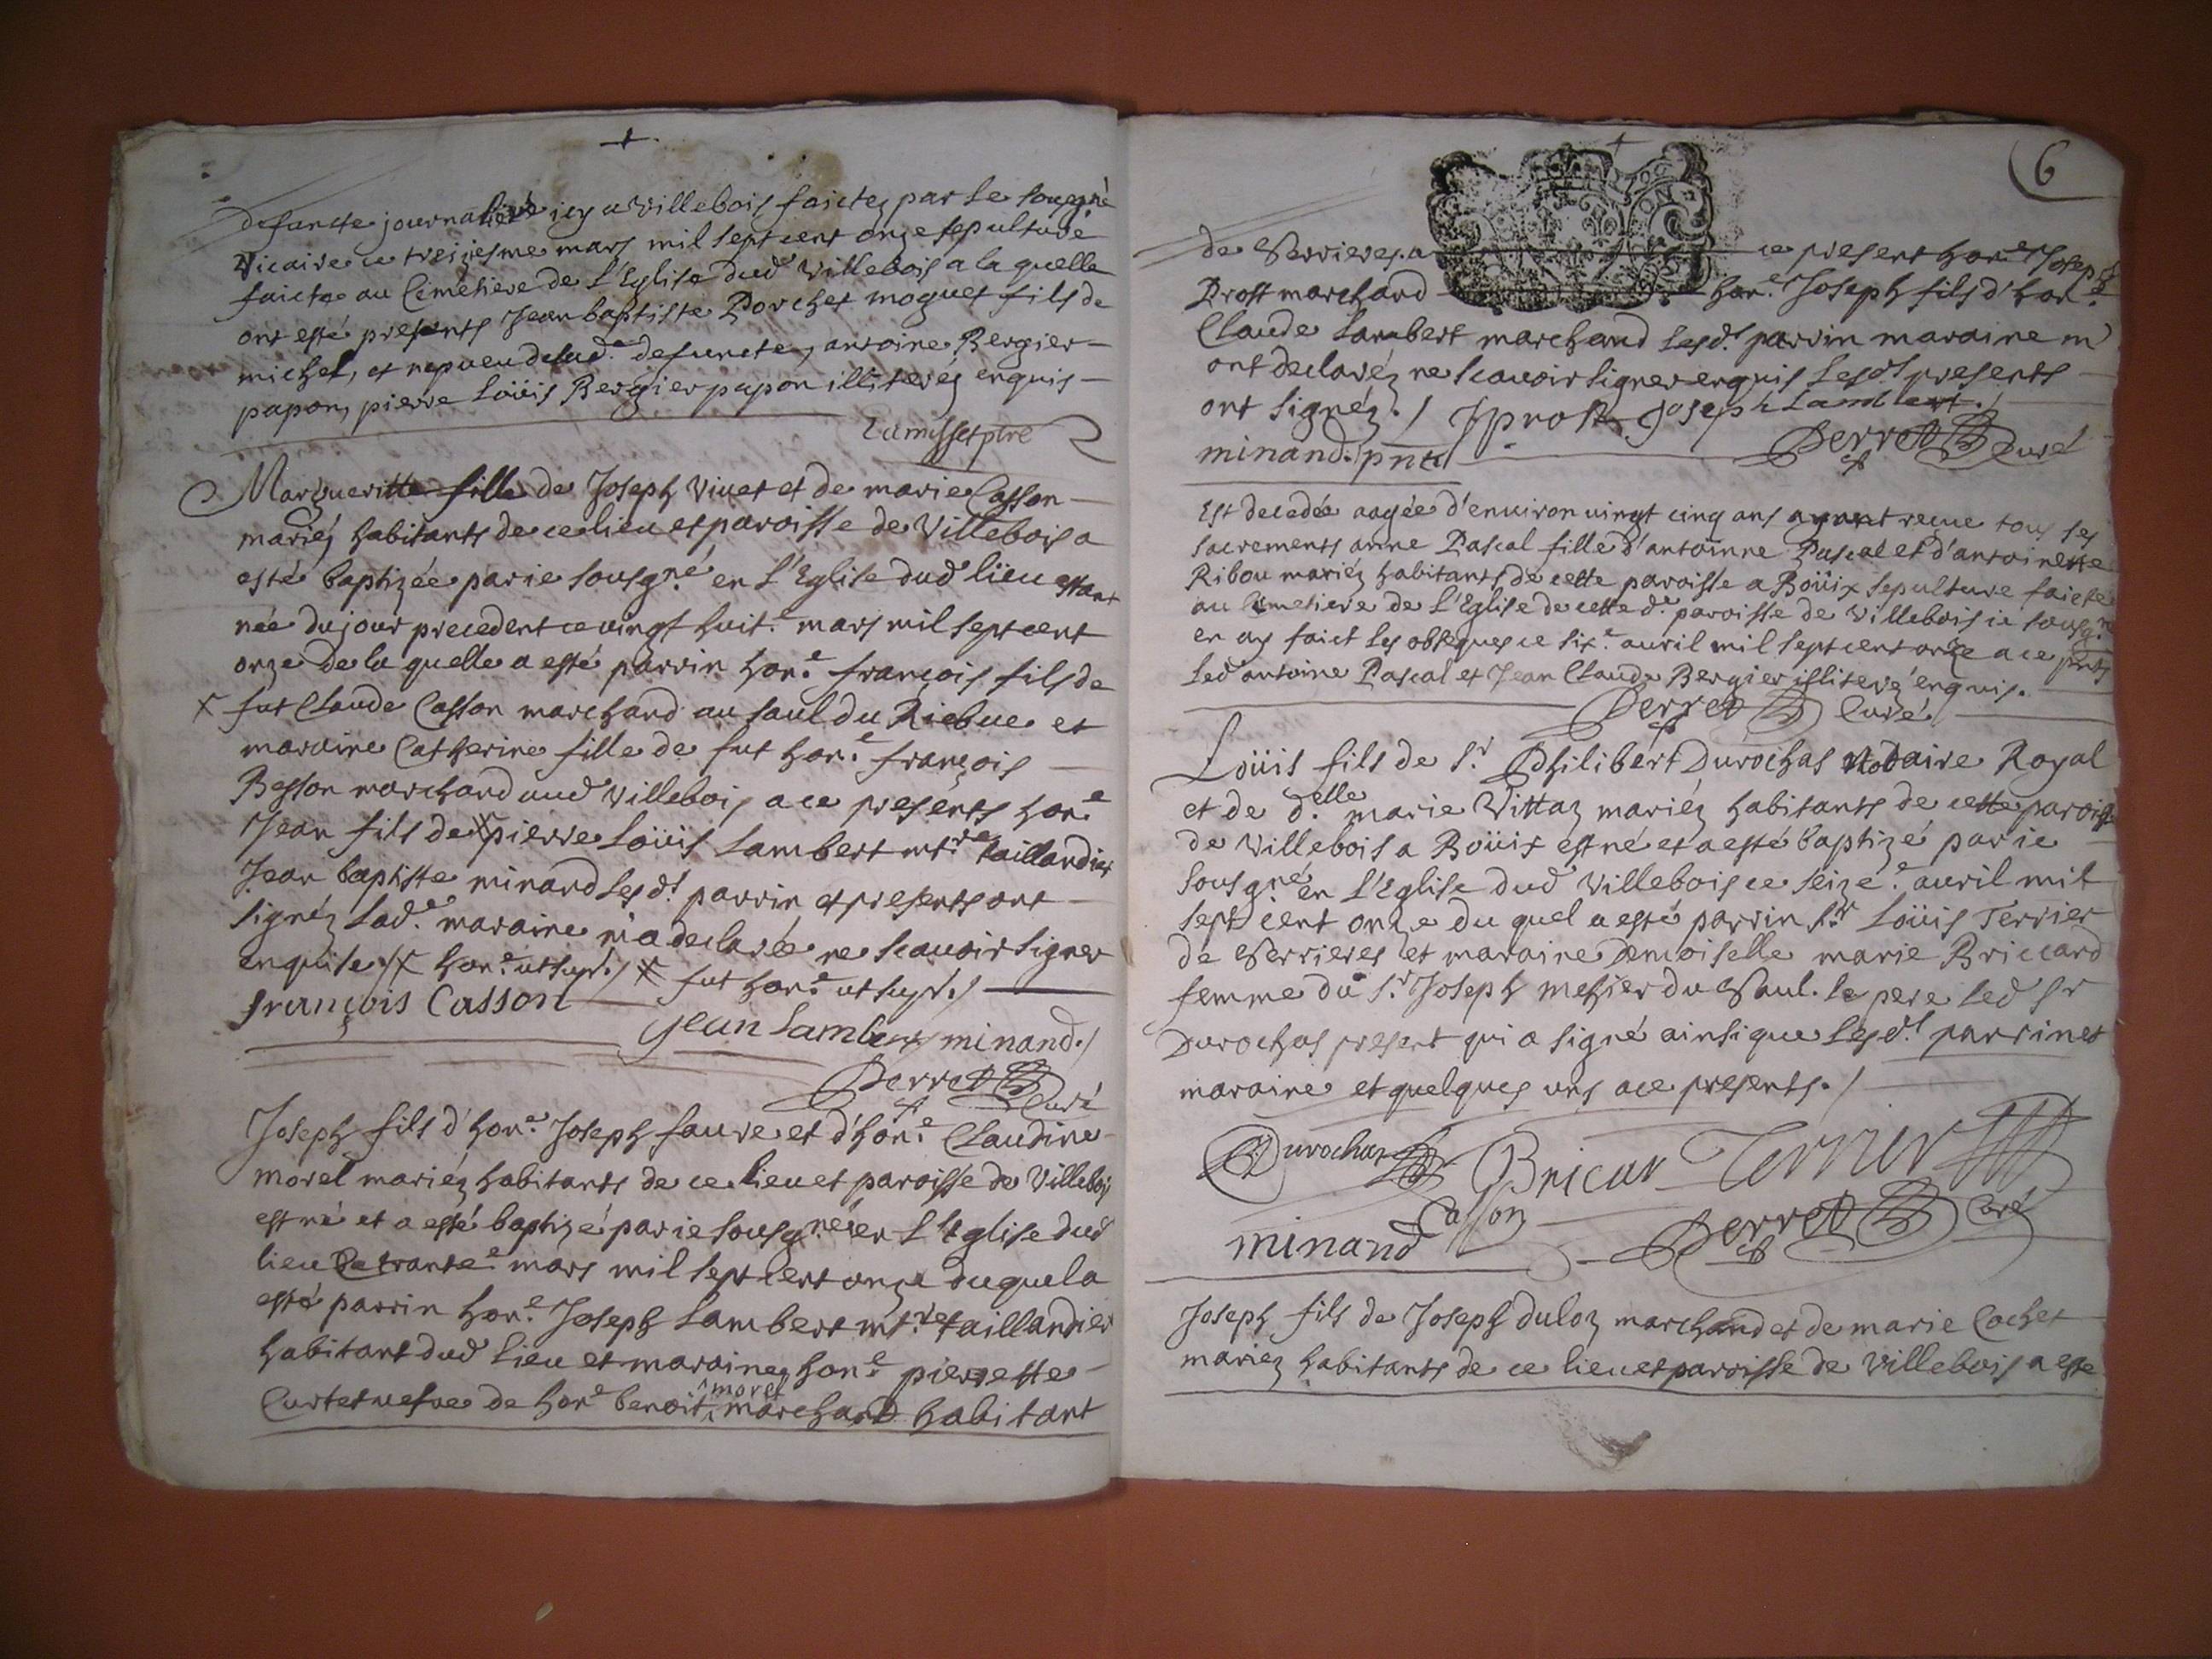 defuncte journaliere icy a Villebois faictes par le sousgné
Vicaire ce treiziesme mars mil sept cent onze sepulture
faicte au Cimetiere de L'Eglise dud. Villebois a la quelle
ont esté presents Jean baptiste Porchet moguet fils de
michel, et nepveu de lad.e defuncte, antoine Bergier
papon, pierre Loüis Bergier papon illiterez enquis
ptre
Margueritte fille de Joseph Vivet et de marie Casson
mariéz habitants de ce lieu et paroisse de Villebois a
esté baptizée par ie sousgné en L'Eglise dud lieu estant
née du jour precedent ce vingt huit.e mars mil sept cent
onze de la quelle a esté parrin hon.e françois fils de
x fut Claude Casson marchand au saul du Riebue et
maraine Catherine fille de fut hon.e françois
Besson marchand aud Villebois a ce presents hon.e
Jean fils de x pierre Loüis Lambert mt.re taillandier
Jean baptiste minand lesd.t parrin et presents ont
signéz lad.e maraine m'a declarée ne scavoir signer
enquise ./ x hon.e ut supr. / x fut hon.e ut supr. /
françois Casson
Jean Lambert minand. /
Perret Curé
Joseph fils d'hon.e Joseph faure et d'hon.e Claudine
morel mariéz habitants de ce lieu et paroisse de Villebois
est né et a esté baptizé par ie sousgné en L'Eglise dud
lieu Ce trante.e mars mil sept cent onze du quel a
esté parrin hon.e Joseph Lambert mt.re taillandier
habitant dud lieu et maraine hon.e pierrette
Curtet vefve de hon.e benoit ^morel marchand habitant
6
de Serrieres a ce present hon.e Joseph
Prost marchand hon.e Joseph fils d'hon.e
Claude Lambert marchand lesd.t parrin maraine m'
ont declaréz ne scavoir signer enquis lesd.t presents
ont signéz. / J prost Joseph Lambert. /
minand. pnt Perret Curé
Est decedée aagée d'environ vingt cinq ans ayant reçue tous ses
sacrements anne Pascal fille d'antoinne Pascal et d'antoinette
Ribou mariéz habitants de cette paroisse a Boüix sepulture faicte
au Cimetiere de L'Eglise de cette d.e paroisse de Villebois ie sousg.né
en ay faict les obseques ce six.e avril mil sept cent onze a ce pnts
led antoine Pascal et Jean Claude Bergier illiteréz enquis.
Perret Curé. /
Loüis fils de S.r Philibert Durochas Notaire Royal
et de d.elle marie Vittaz mariéz habitants de cette paroisse
de Villebois a Boüix est né et a esté baptizé par ie
sousgné en L'Eglise dud Villebois ce seizé.e avril mil
sept cent onze du quel a esté parrin S.r Loüis Terrier
de Serrieres et maraine Demoiselle marie Briccard
femme du S.r Joseph mehier du Saul. le pere led S.r
Durochas present qui a signé ainsi que lesd.t parrin et
maraine et quelques uns a ce presents. /
Durochas Bricar Terrier
Casson
minand Perret Curé
Joseph fils de Joseph duloz marchand et de marie Cochet
mariez habitants de ce lieu et paroisse de Villebois a este